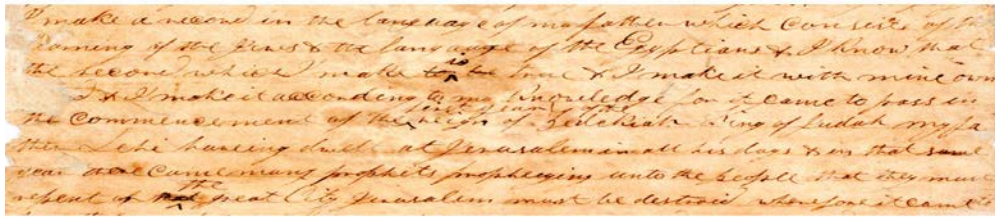 I make a record in the language of my father which consists of the
learning of the Jews & the language of the Egyptians & I know that
the record which I make to be true & I make it with mine own
& I make it according to my knowledge for it came to pass in
the commencement of the first year of the reign of Zedekiah King of Judah my fa
ther Lehi having dwelt at Jerusalem in all his days & in that same
year there came many prophets prophesying unto the people that they must
repent or the great City Jerusalem must be destroid wherefore it came